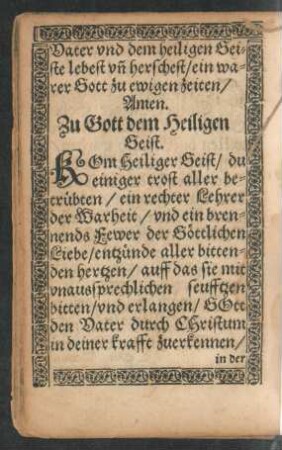 Vater vnd dem heiligen Gei-
ste lebest vñ herschest/ ein wa-
rer Gott zu ewigen zeiten/
Amen.
Zu Gott dem Heiligen
Geist.
KOm Heiliger Geist/ du
einiger trost aller be-
trübten / ein rechter Lehrer
der Warheit / vnd ein bren-
nends Fewer der Göttlichen
Liebe/ entzünde aller bitten-
den hertzen / auff das sie mit
vnaussprechlichen seufftzen
bitten/ vnd erlangen / GOtt
den Vater durch CHristum
in deiner krafft zuerkennen /
in der